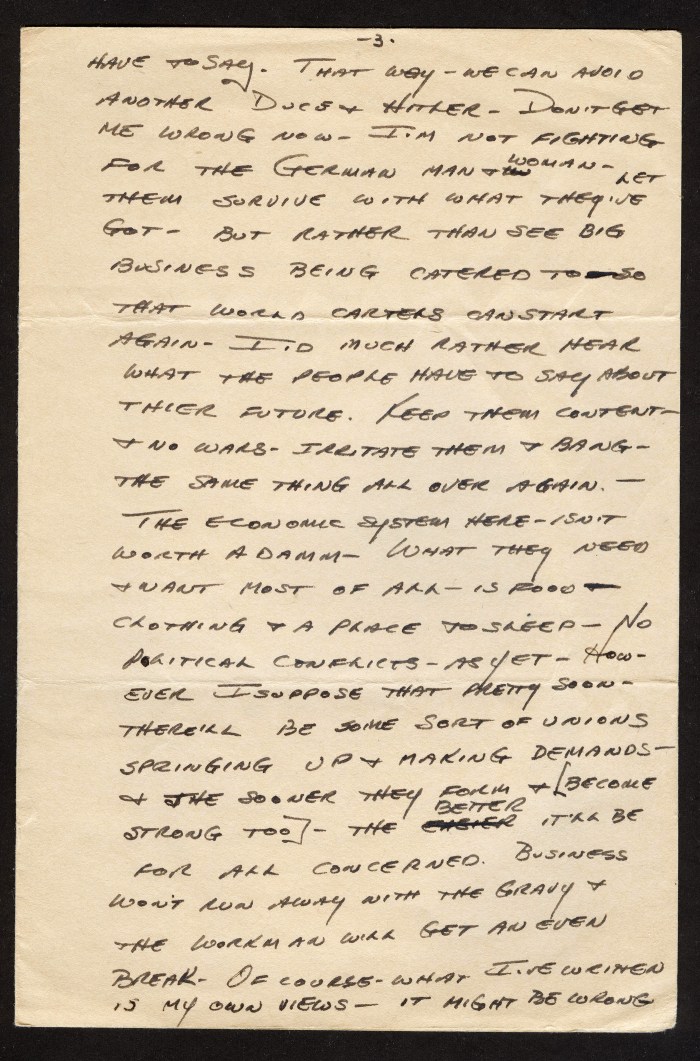 -3-
HAVE TO SAY. THAT WAY - WE CAN AVOID
ANOTHER DUCE & HITLER - DON'T GET
ME WRONG NOW - I'M NOT FIGHTING
FOR THE GERMAN MAN & WOMAN - LET
THEM SURVIVE WITH WHAT THEY'VE
GOT - BUT RATHER THAN SEE BIG
BUSINESS BEING CATERED TO SO
THAT WORLD CARTELS CAN START
AGAIN - I'D MUCH RATHER HEAR
WHAT THE PEOPLE HAVE TO SAY ABOUT
THIER FUTURE. KEEP THEM CONTENT -
& NO WARS - IRRITATE THEM & BANG -
THE SAME THING ALL OVER AGAIN. -
THE ECONOMIC SYSTEM HERE - ISN'T
WORTH A DAMM - WHAT THEY NEED
& WANT MOST OF ALL - IS FOOD -
CLOTHING & A PLACE TO SLEEP - NO
POLITICAL CONFLICTS - AS YET - HOW-
EVER I SUPPOSE THAT PRETTY SOON -
THERE'LL BE SOME SORT OF UNIONS
SPRINGING UP & MAKING DEMANDS -
& THE SOONER THEY FORM & [BECOME
STRONG TOO] - THE BETTER IT'LL BE
FOR ALL CONCERNED. BUSINESS
WON'T RUN AWAY WITH THE GRAVY &
THE WORKMAN WILL GET AN EVEN
BREAK - OF COURSE - WHAT I'VE WRITTEN
IS MY OWN VIEWS - IT MIGHT BE WRONG